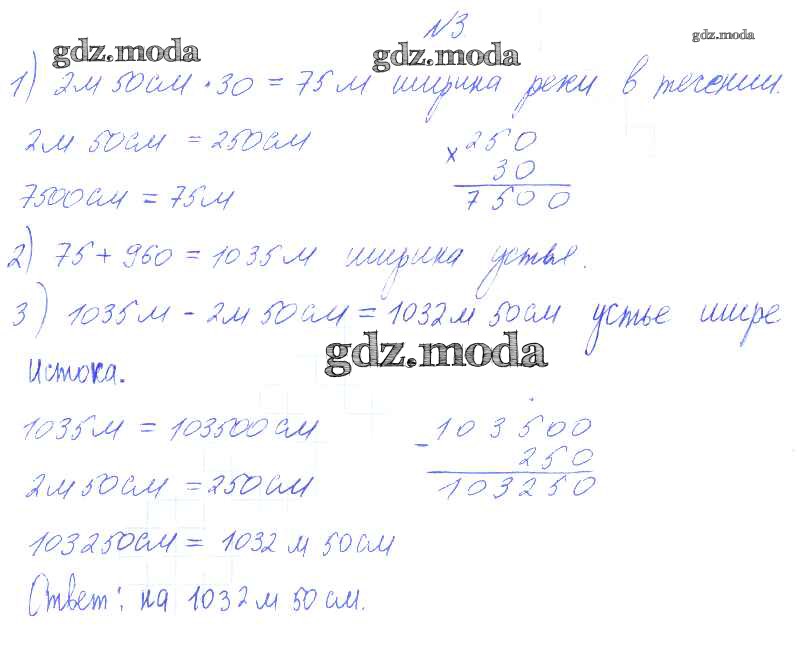 №3.
gdz.moda gdz.moda gdz.moda
1) 2м 50см · 30 = 75м ширина реки в течении.
2м 50см = 250см
× 250
30
7500
7500см = 75м
2) 75 + 960 = 1035м ширина устья.
3) 1035м - 2м 50см = 1032м 50см устье шире
gdz.moda
истока.
1035м = 103500см
- 103500
250
103250
2м 50см = 250см
103250см = 1032 м 50см
Ответ: на 1032 м 50 см.